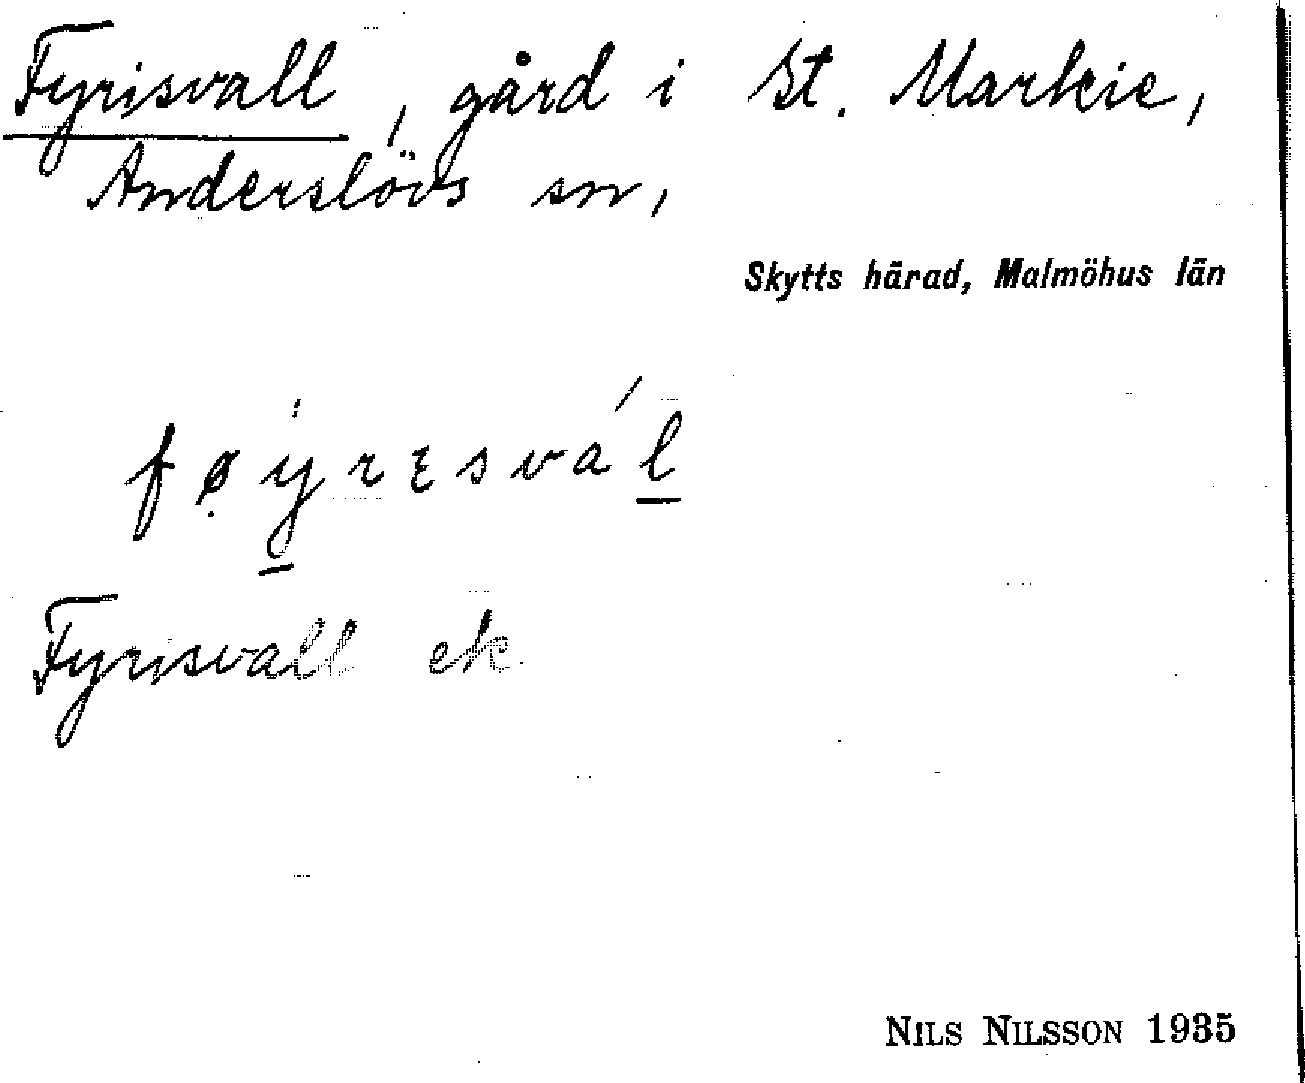 Fyrisvall, gård i St. Markie,
Anderslövs sn,
Skytts härad, Malmöhus län
Fyrisvall ek
NILS NILSSON 1935